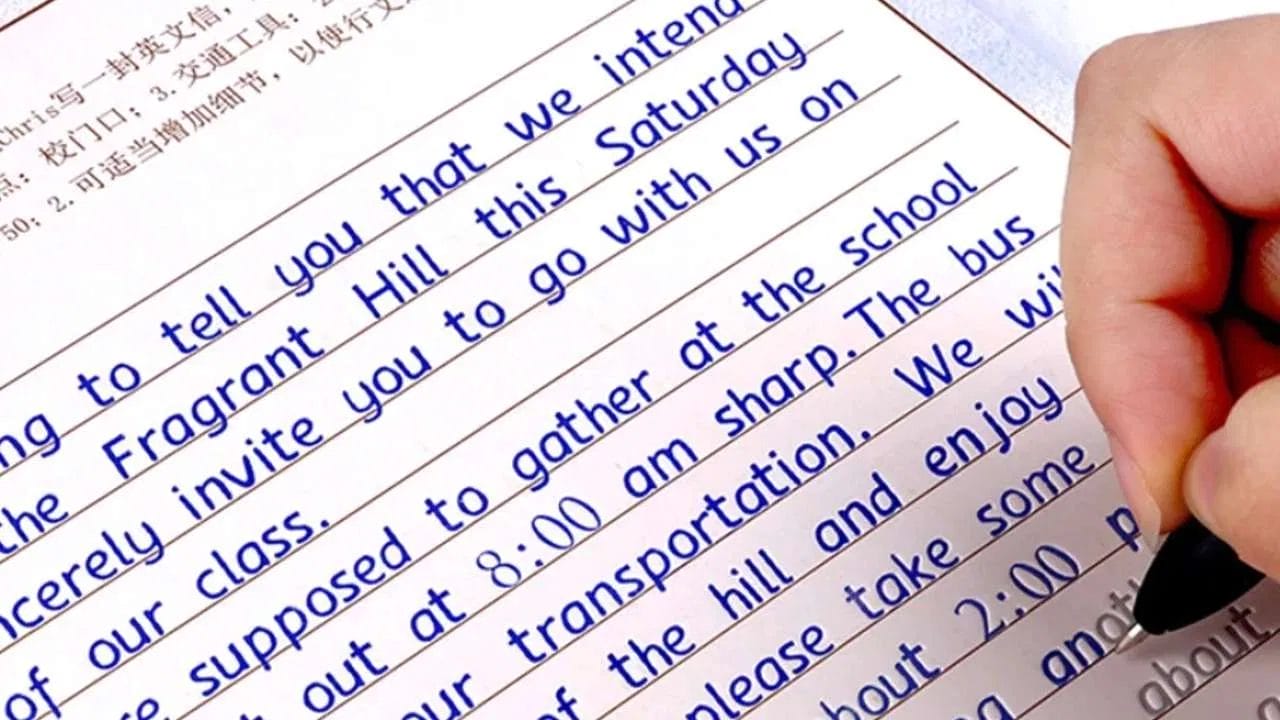 Chris写一封英文信，
点：校门口；3.交通工具：
50；2.可适当增加细节，以使行文
to tell you that we intend
the Fragrant Hill this Saturday
invite you to go with us on
of our class.
supposed to gather at the school
out at 8:00 am sharp. The bus
transportation. We
of the hill and enjoy
please take some
2:00 p
about